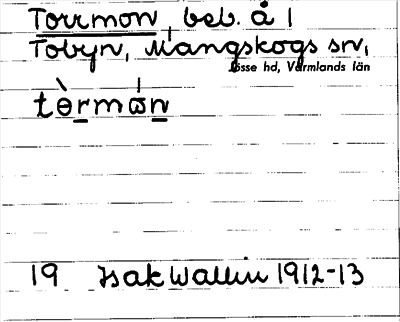 Torrmon, beb. å 1
Tobyn, Mangskogs sn,
Jösse hd, Värmlands län
tɵ̀rmɷ́n
19 Isak Wallin 1912-13